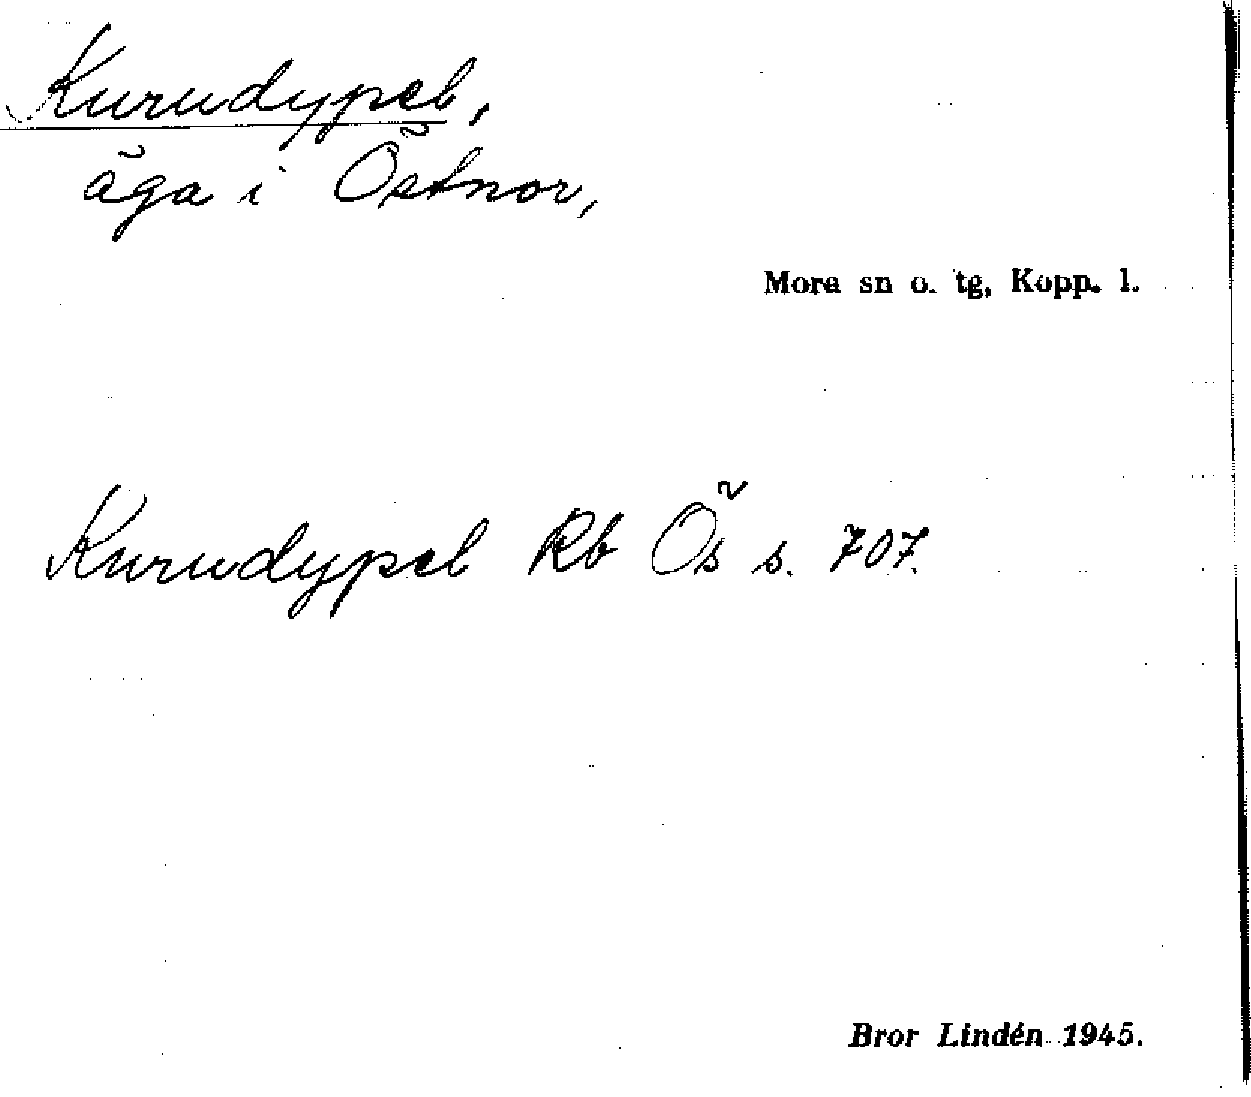 Kurudypel,
äga i Östnor,
Mora sn o. tg, Kopp. l.
Kurudypel Rb Ös s. 707.
Bror Lindén 1945.